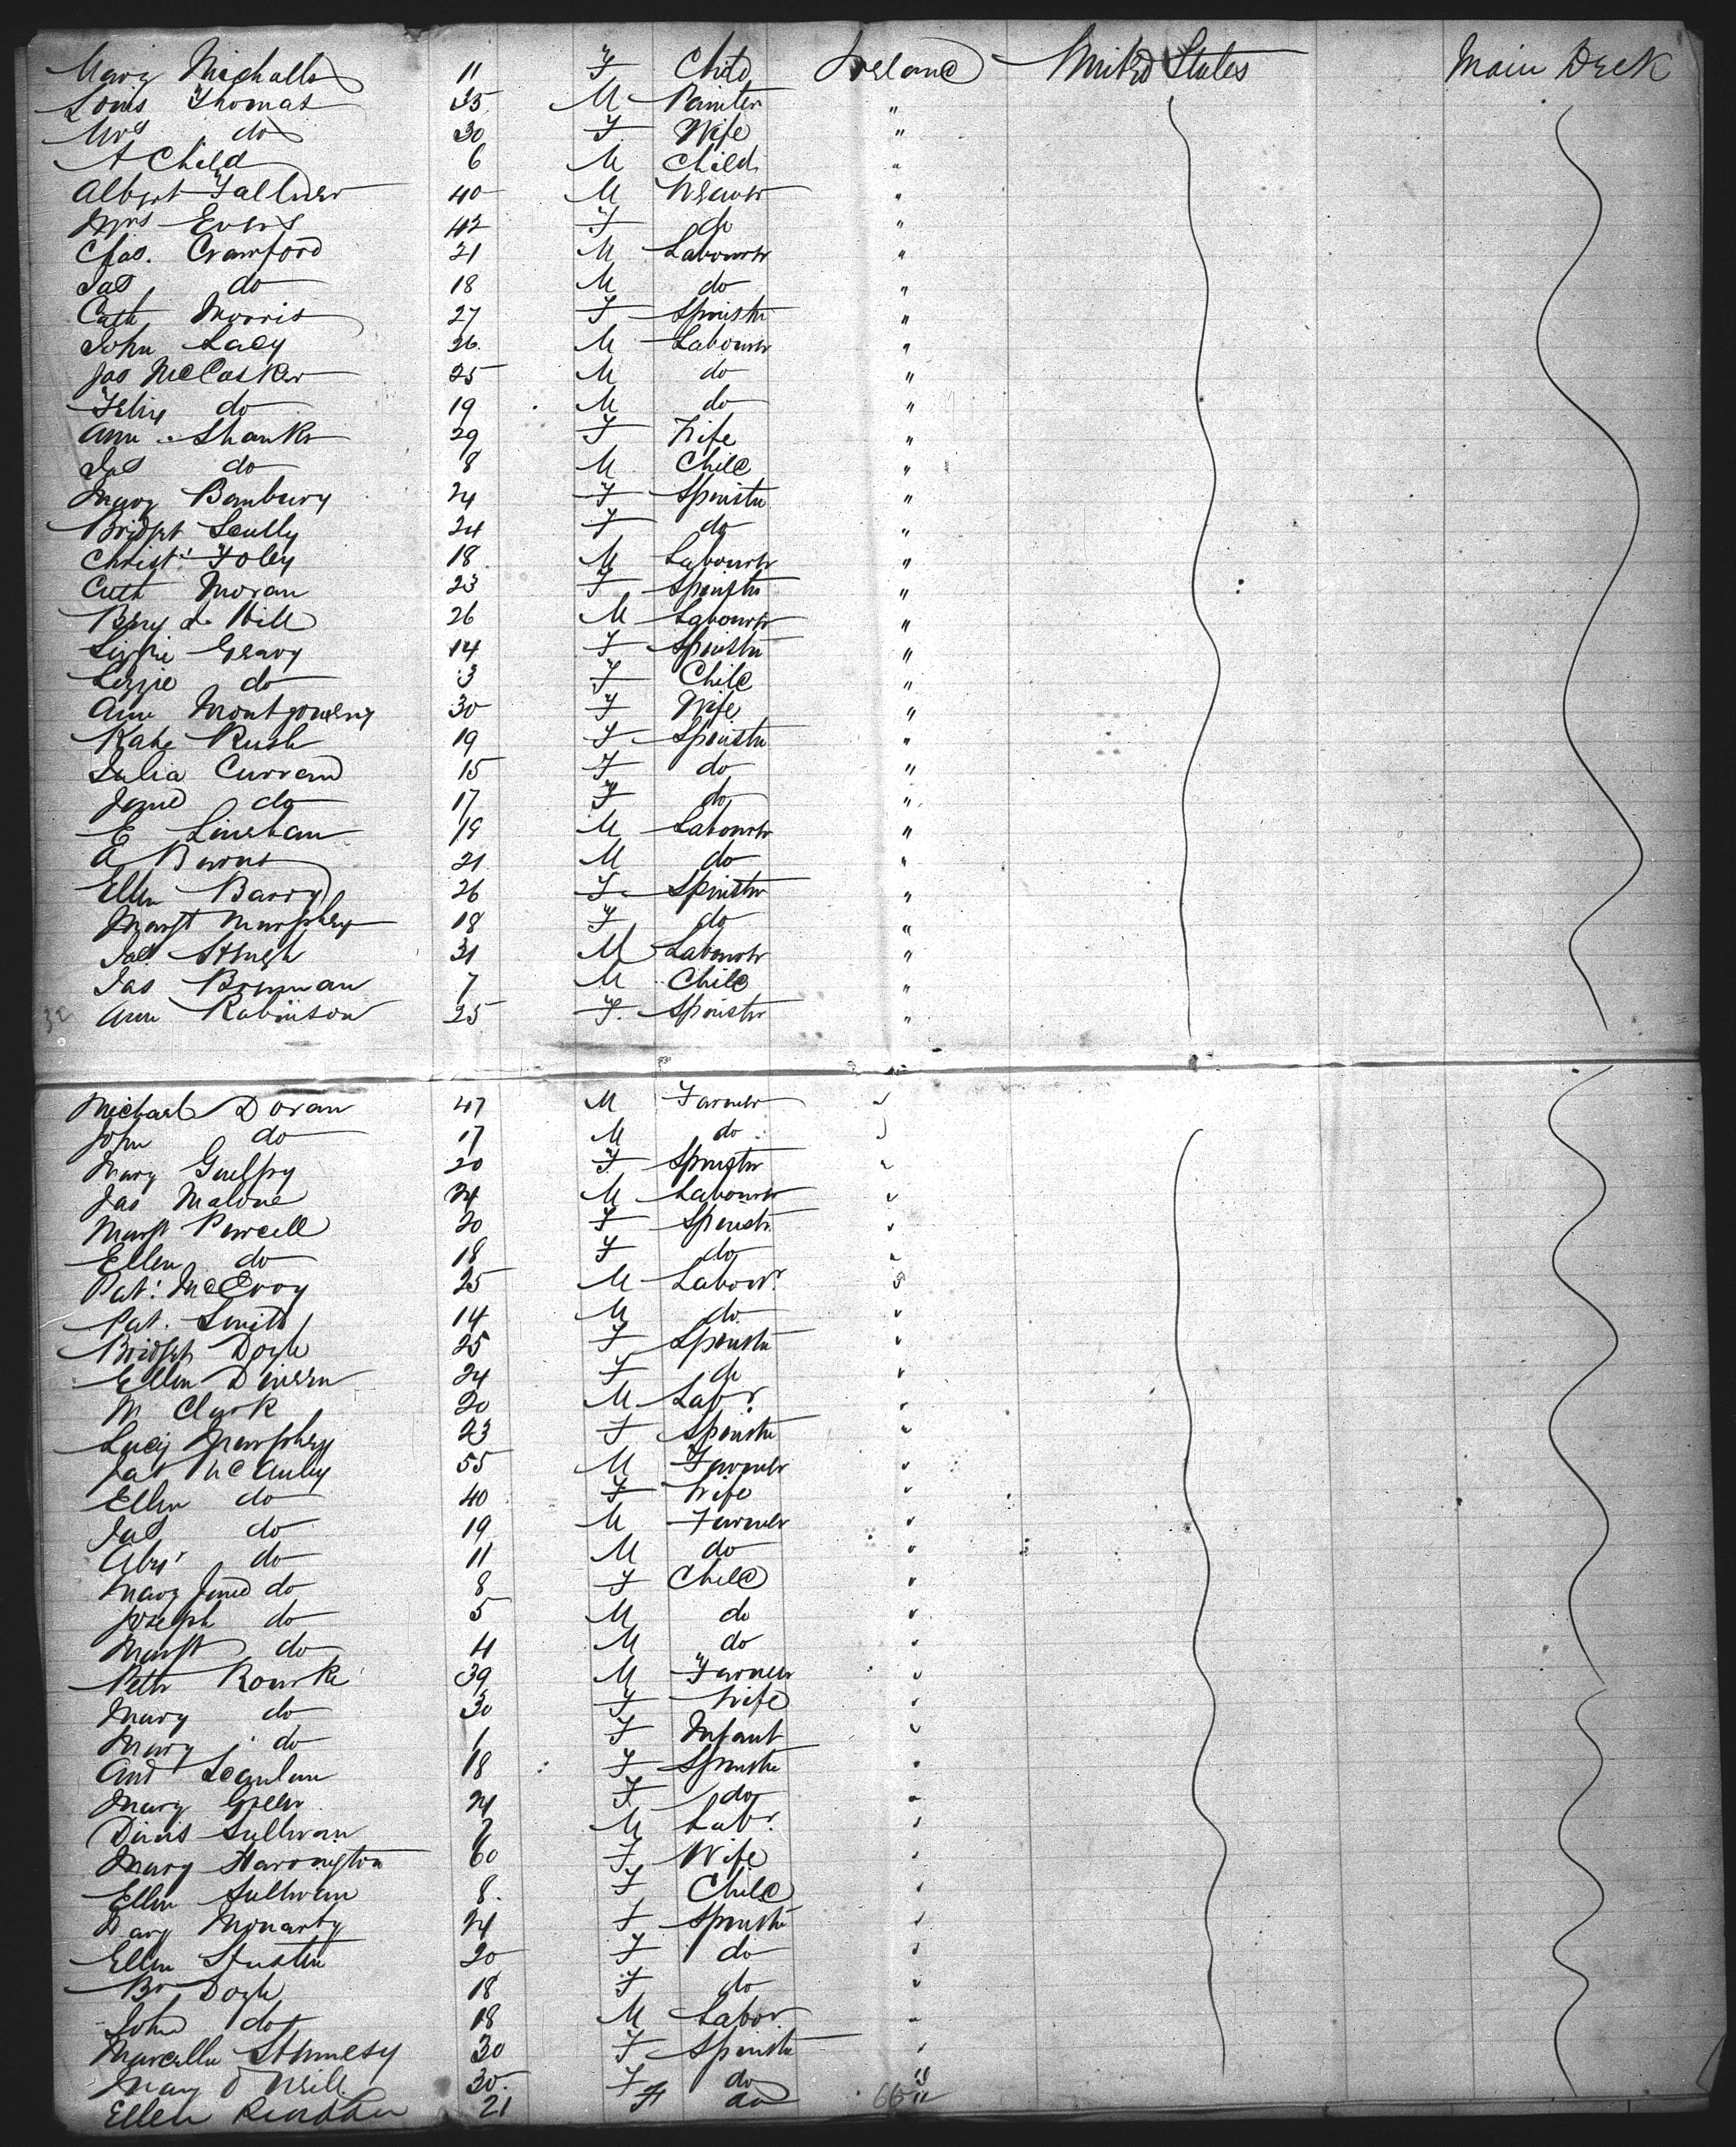 Mary Nicholls 11 F Child Ireland United States Main Deck
Louis Thomas 35 M Painter "
Mrs do 30 F Wife "
A Child 6 M Child "
Albert 40 M Weaver "
Mrs Evers 42 F do "
Chas. Crawford 21 M Labourer "
Jas do 18 M do "
Cath Morris 27 F Spinster "
John Lacy 26 M Labourer "
Jas McCasker 25 M do "
Felix do 19 M do "
Ann Shanks 29 F Wife "
Jas do 8 M Child "
Mary Banbury 24 F Spinster "
Bridget Scully 24 F do "
Christr Foley 18 M Labourer "
Cath Moran 23 F Spinster "
Hill 26 M Labourer "
Lizzie Geary 14 F Spinster "
Lizzie do 3 F Child "
Ann Montgomery 30 F Wife "
Kate Rush 19 F Spinster "
Julia Curran 15 F do "
Jane do 17 F do "
E Linehan 19 M Labourer "
A Burns 21 M do "
Ellen Barry 26 F Spinster "
Margt Murphey 18 F do "
Jas Hugh 31 M Labourer "
Jas 7 M Child "
32 Ann Robinson 25 F Spinster "
Michael Doran 47 M Farmer "
John do 17 M do "
Mary 20 F Spinster "
Jas Malone 24 M Labourer "
Margt Purcell 20 F Spinstr "
Ellen do 18 F do "
Pat. McEvoy 25 M Labour. "
Pat. Smith 14 M do "
Bridget Doyle 25 F Spinster "
Ellen Dineen 24 F do "
M Clark 20 M Labr "
Lucy Murphey 23 F Spinster "
Jas McAuley 55 M Farmer "
Ellen do 40 F Wife "
Jas do 19 M Farmer "
do 11 M do "
Mary Jane do 8 F Child "
Joseph do 5 M do "
Margt do 4 M do "
Peter Rourke 39 M Farmer "
Mary do 30 F Wife "
Mary do 1 F Infant "
Ann Scanlan 18 F Spinster "
Mary Green 24 F do "
Dinis Sullivan 7 M Labr. "
Mary Harrington 60 F Wife "
Ellen Sullivan 8 F Child "
Mary Moriarty 24 F Spinster "
Ellen 20 F do "
Br Doyle 18 F do "
John do 18 M Labor "
Marcella Hennesy 30 F Spinster "
Mary O Neill 30 F do "
Ellen 21 F do 66 "